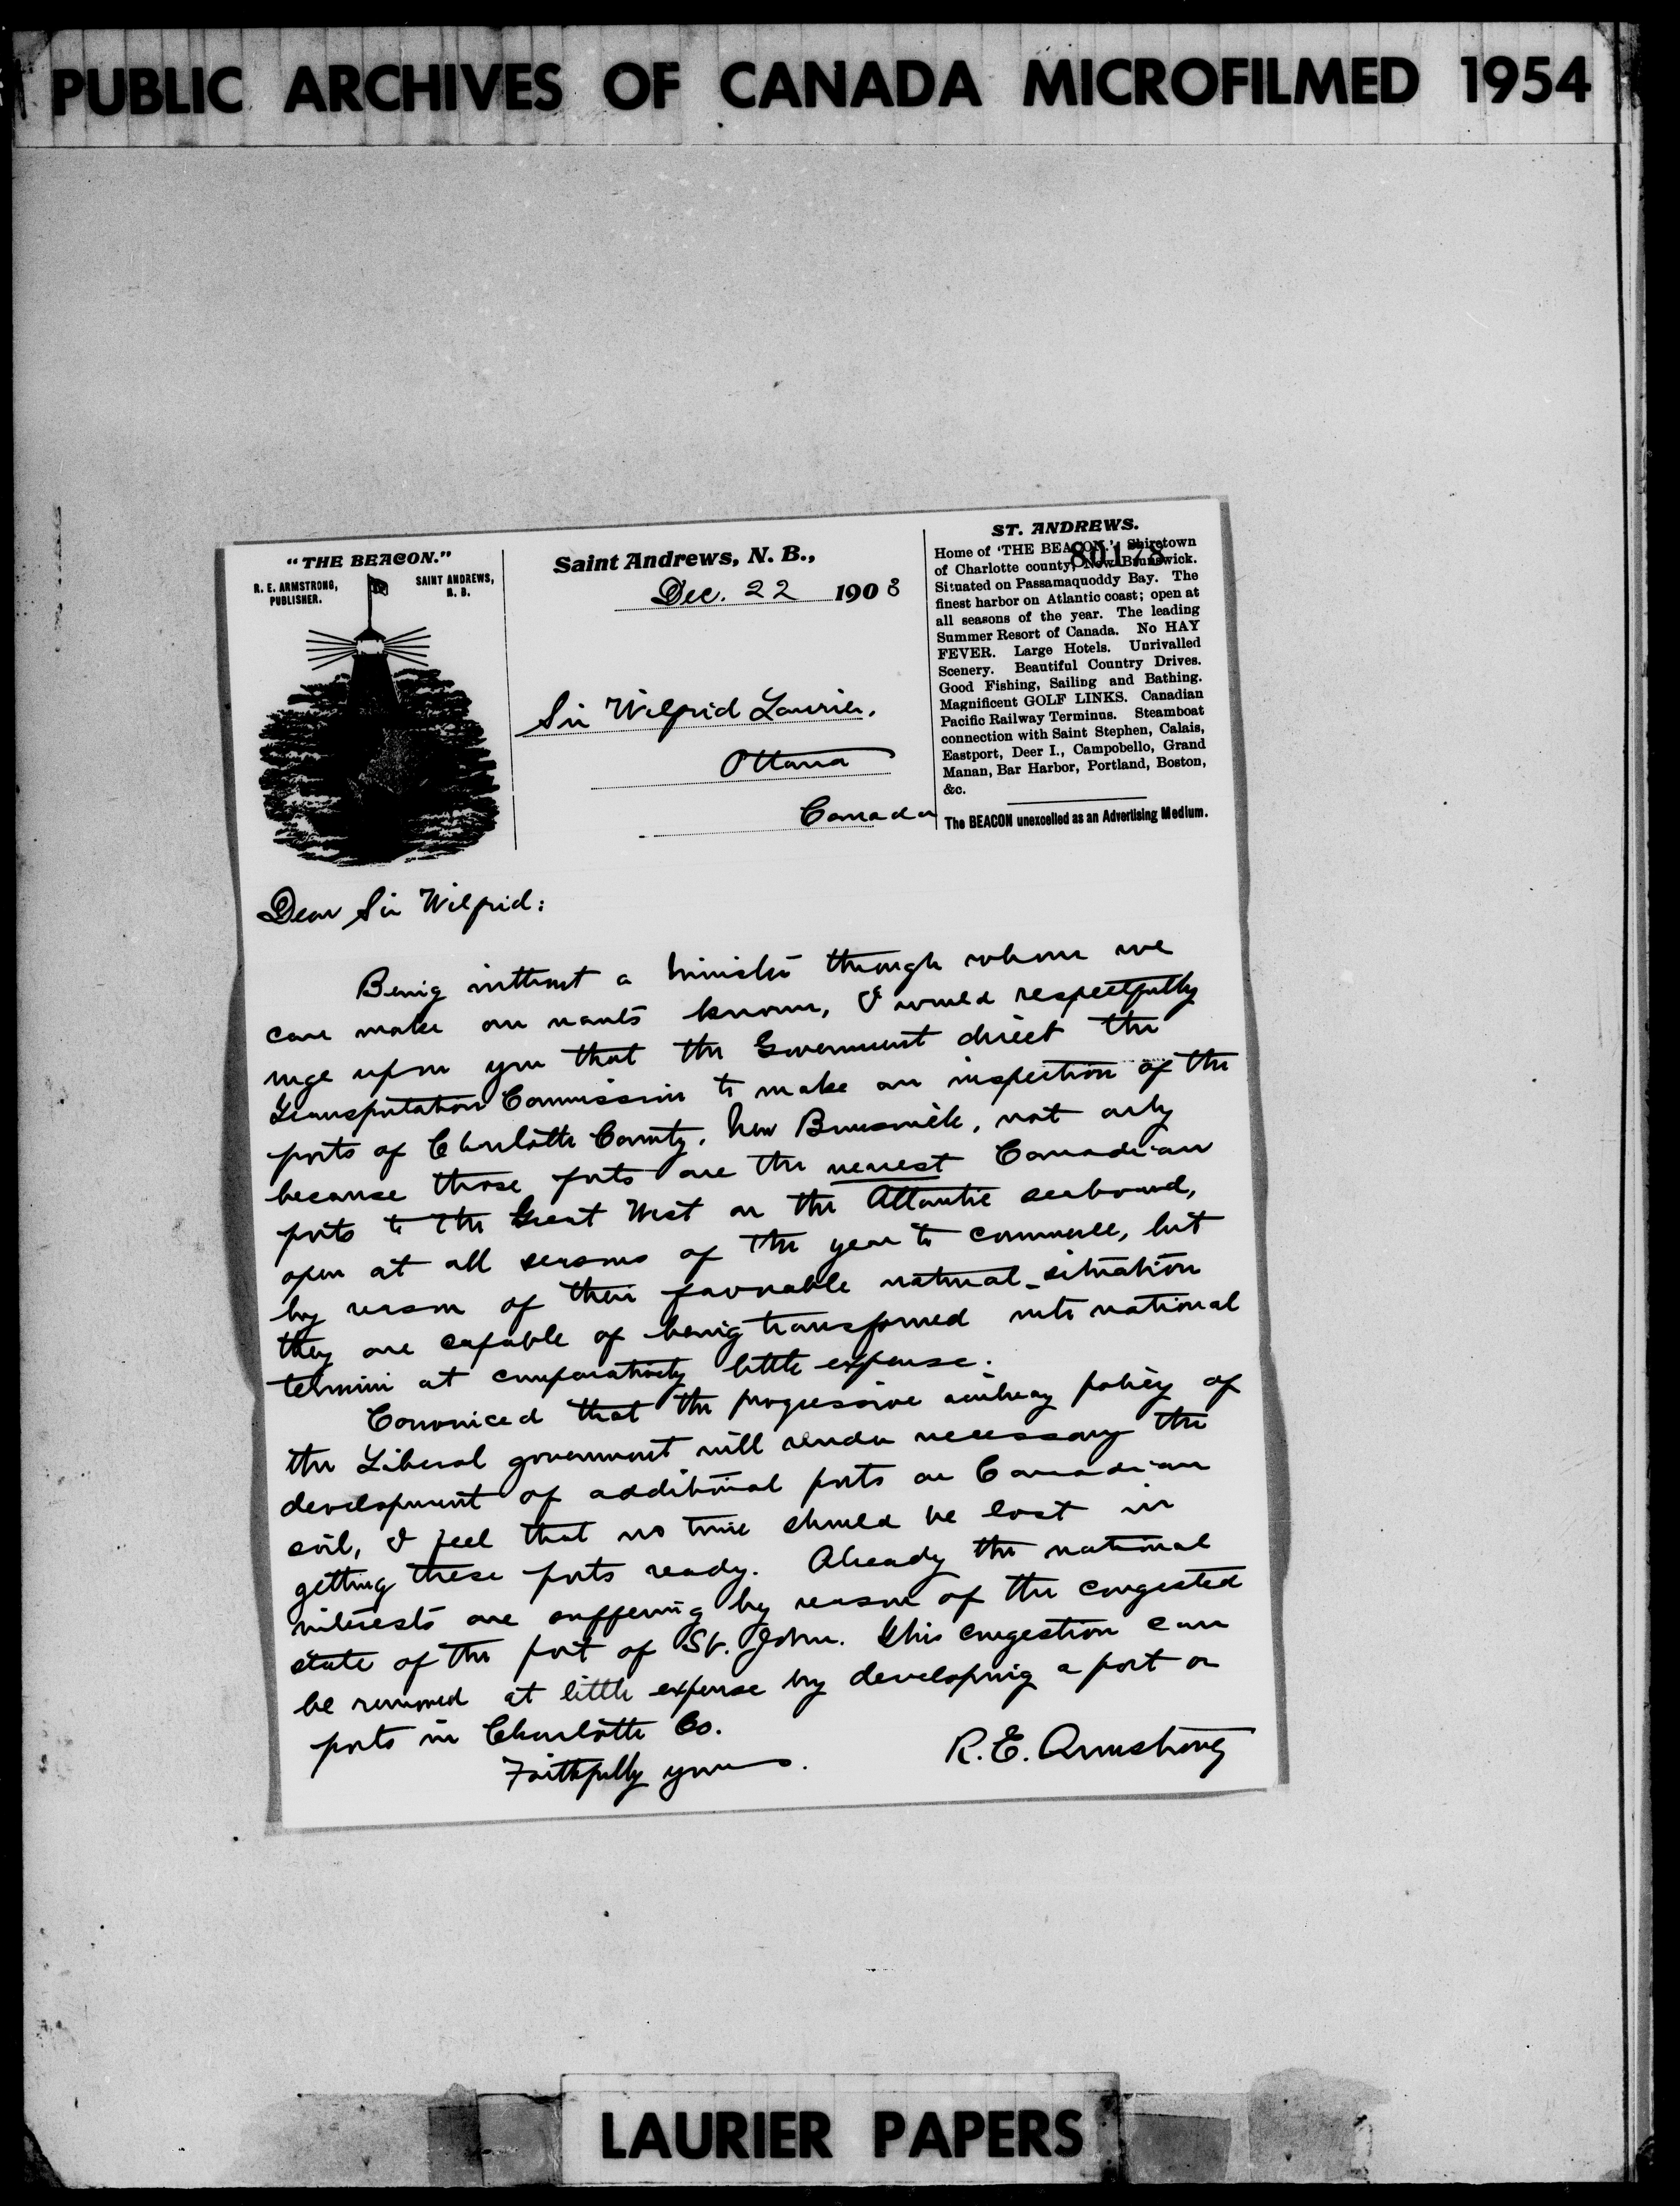 PUBLIC ARCHIVES OF CANADA MICROFILMED 1954
"THE BEACON."
R. E. ARMSTRONG,
PUBLISHER.
SAINT ANDREWS,
N. B.
Saint Andrews, N. B.,
Dec. 22 1903
Sir Wilfrid Laurier,
Ottawa
Canada
ST. ANDREWS.
80178
Home of 'THE BEACON.' Shiretown
of Charlotte county, New Brunswick.
Situated on Passamaquoddy Bay. The
finest harbor on Atlantic coast; open at
all seasons of the year. The leading
Summer Resort of Canada. No HAY
FEVER. Large Hotels. Unrivalled
Scenery. Beautiful Country Drives.
Good Fishing, Sailing and Bathing.
Magnificent GOLF LINKS. Canadian
Pacific Railway Terminus. Steamboat
connection with Saint Stephen, Calais,
Eastport, Deer I., Campobello, Grand
Manan, Bar Harbor, Portland, Boston,
&c.
The BEACON unexcelled as an Advertising Medium.
Dear Sir Wilfrid:
Being without a minister through whom we
can make our wants known, I would respectfully
urge upon you that the Government direct the
Transportation Commission to make an inspection of the
ports of Charlotte County, New Brunswick, not only
because those ports are the nearest Canadian
ports to the Great West on the Atlantic seaboard,
open at all seasons of the year to commerce, but
by reason of their favorable natural situation
they are capable of being transformed into national
termini at comparatively little expense.
Convinced that the progressive railway policy of
the Liberal government will render necessary the
development of additional ports on Canadian
soil, I feel that no time should be lost in
getting these ports ready. Already the national
interests are suffering by reason of the congested
state of the port of St. John. This congestion can
be removed at little expense by developing a port or
ports in Charlotte Co.
Faithfully yours.
R. E. Armstrong
LAURIER PAPERS